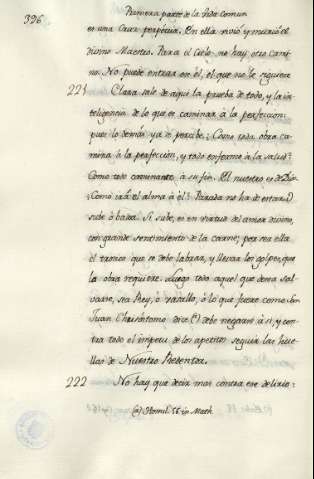 396
Primera parte de la Vida comun
es una Cruz perpetua. En ella vivió y murió el
divino Maestro. Para el Cielo no hay otro cami
no. No puede entrar en él, el que no le siguiere
221 Clara sale de aqui la prueba de todo, y la in
teligencia de lo que es caminar á la perfeccion:
pues lo demás ya se percibe. ¿Como toda obra ca
mina á la perfeccion, y todo enfermo á la salud?
Como todo caminante á su fin. El nuestro es Dios
¿Como irá el alma á él? Parada no ha de estar:
sube ó baxa. Si sube, es en virtud del amor divino,
con grande sentimiento de la carne; pues es ella
el tronco que se debe labrar, y llevar los golpes que
la obra requiere. Luego todo aquel que desea sal
varse, sea Rey, ó vasallo, ó lo que fuere como San
Juan Chrisóstomo dice (a) debe negarse á sí, y con
tra todo el impetu de los apetitos seguir las hue
llas de Nuestro Redentor.
222 No hay que decir mas contra ese delirio:
(a) Homil. 55 in Math